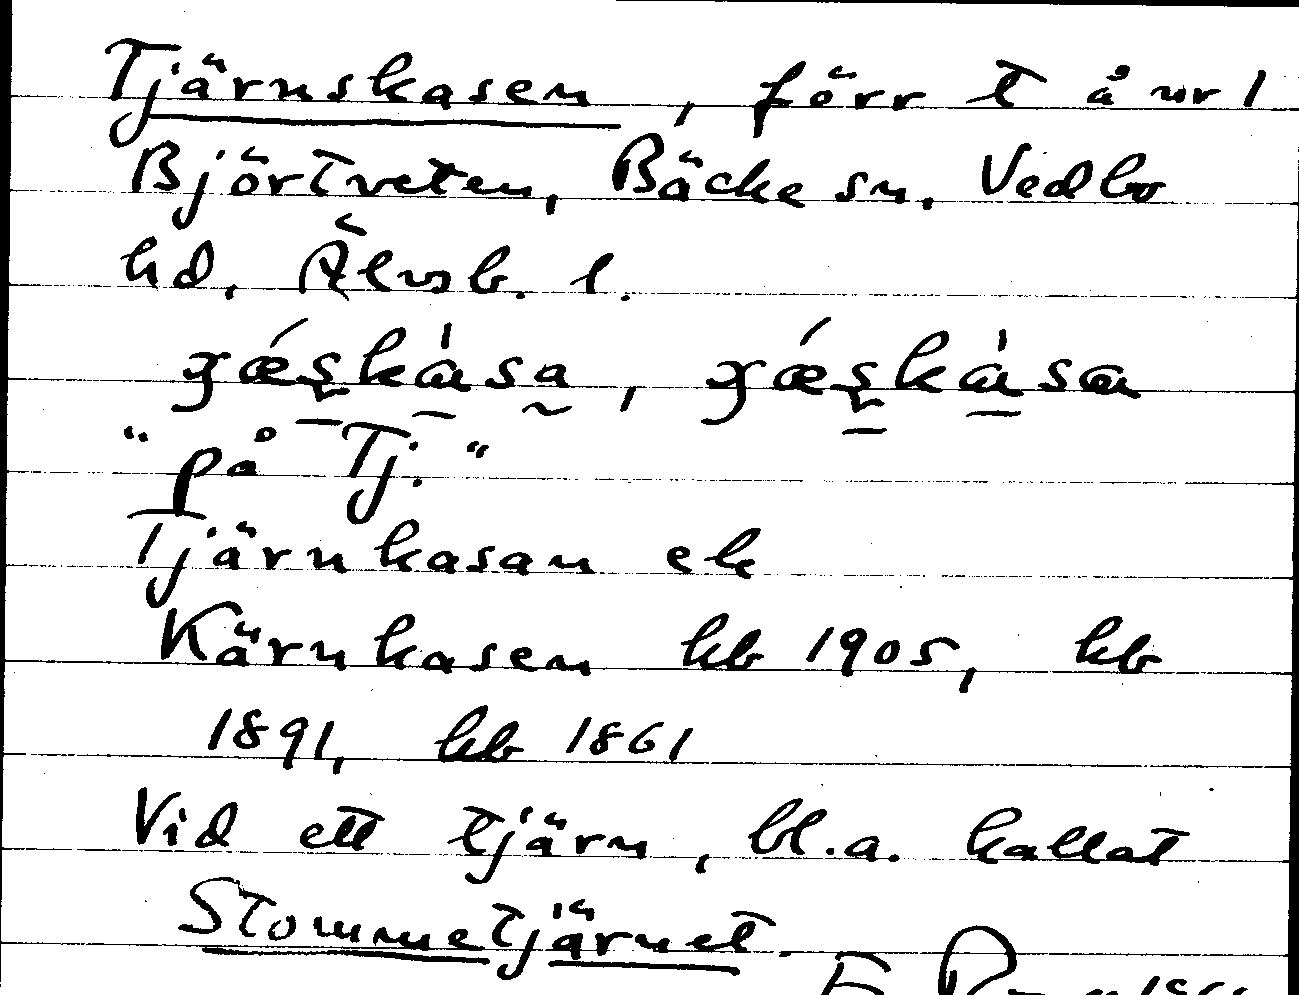 Tjärnskasen, förr t å nr 1
Björtveten, Bäcke sn. Vedbo
hd, Älvsb. l.
"på Tj."
Tjärnkasan el
Kärnkasen hb 1905, hb
1891, hb 1861
Vid ett tjärn, bl.a. kallat
Stommetjärnet.